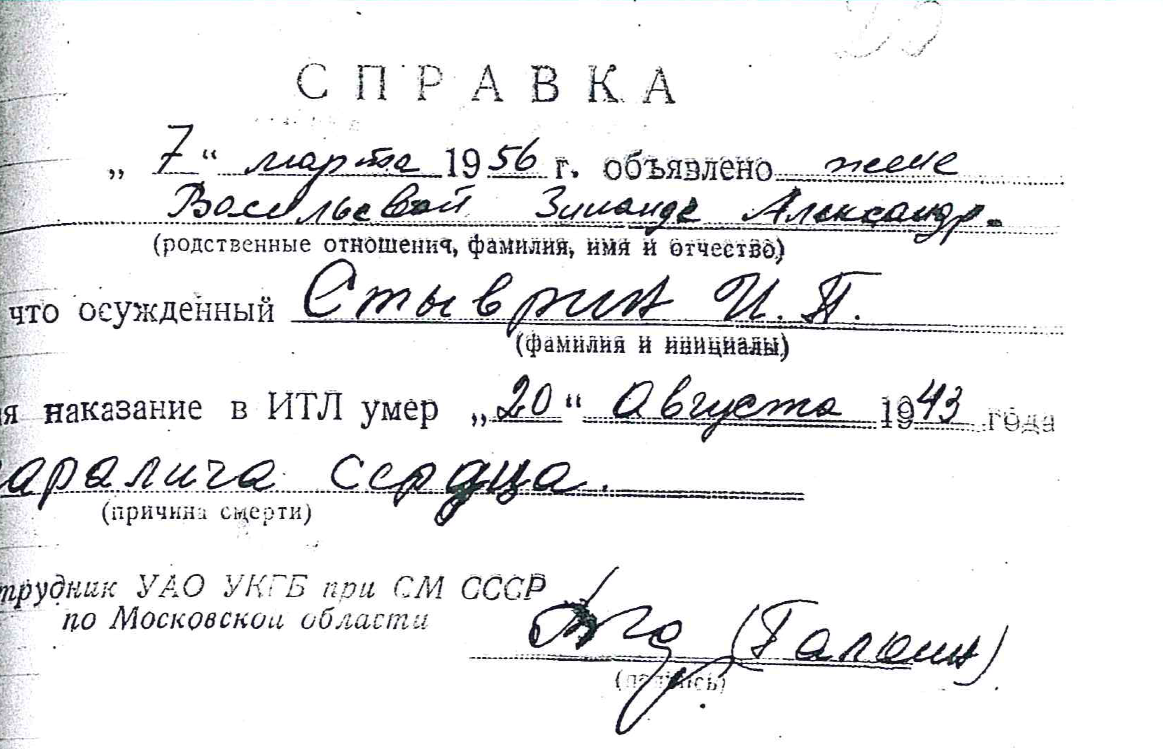 СПРАВКА
„ 7 “ марта 1956 г. объявлено жене
Васильевой Зинаиде Александр.
(родственные отношения, фамилия, имя и отчество)
что осужденный Стыврин И. П.
(фамилия и инициалы)
я наказание в ИТЛ умер „20“ Августа 1943 года
аралича сердца.
(причина смерти)
трудник УАО УКГБ при СМ СССР
по Московской области
(Галкин)
(подпись)